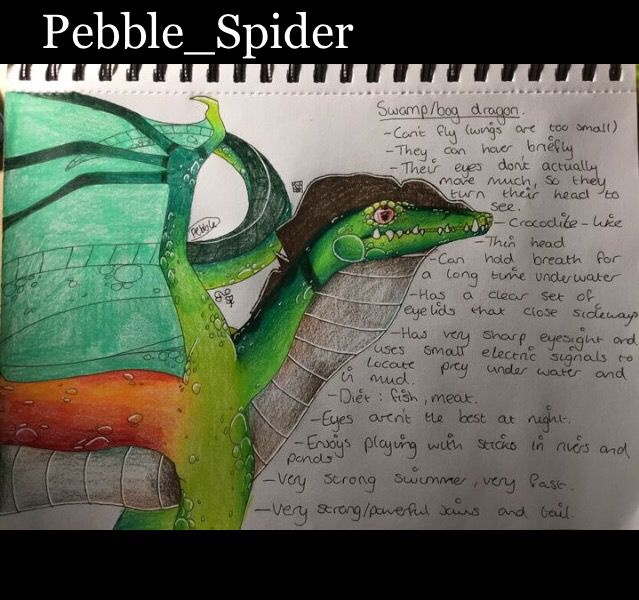 Pebble_Spider
Swamp/bog dragon.
- Can't fly (wings are too small)
- They can hover briefly
- Their eyes don't actually
move much, so they
turn their head to
see.
- Crocodile-like
- Thin head
- Can hold breath for
a long time underwater
- Has a clear set of
eyelids that close sideways
- Has very sharp eyesight and
uses small electric signals to
locate prey under water and
in mud.
- Diet: fish, meat.
- Eyes aren't the best at night.
- Enjoys playing with sticks in rivers and
ponds
- Very strong swimmer, very fast.
- Very strong/powerful jaws and tail.
pebble